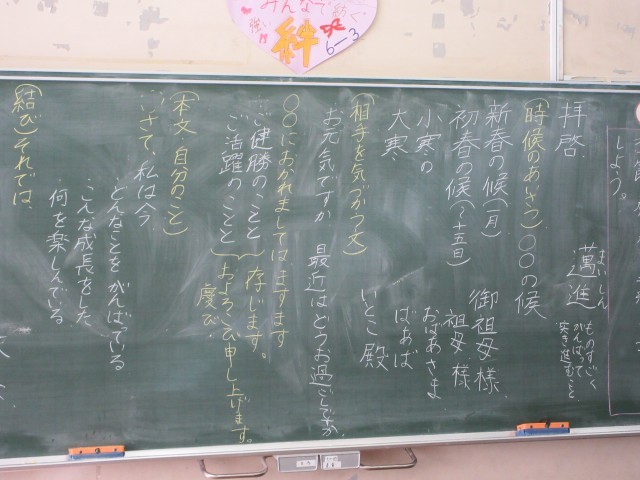 みんなで
強い
動く
絆
6-3
しよう。
拝啓
邁進 まいしん
ものすごく
がんばって
突き進むこと
(時候のあいさつ)〇〇の候
新春の候(一月)
初春の候(〜十五日)
小寒の
大寒
御祖母様
祖母様
おばあさま
ばぁば
いとこ殿
(相手を気づかう文)
お元気ですか 最近はどうお過ごしですか
〇〇におかれましてはますます
ご健勝のことと
ご活躍のことと
存じます。
およろこび申し上げます。
慶び
(本文 自分のこと)
さて、私は今、
どんなことをがんばっている
こんな成長をした
何を楽しんでいる
(結び)それでは、